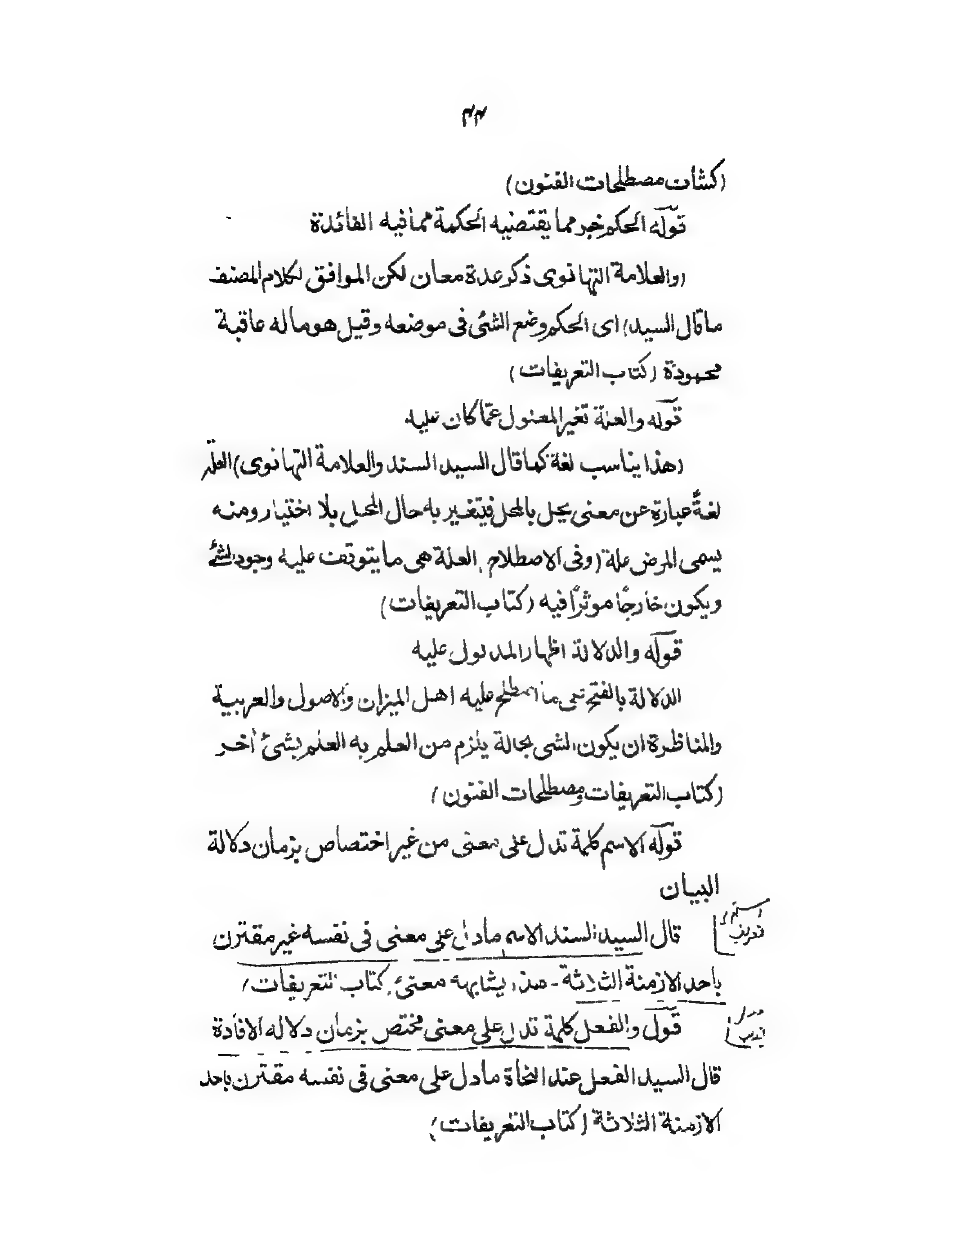 ٤٤
(كشاف مصطلحات الفنون)
قوله الحكم خبر مما يقتضيه الحكمة مما فيه الفائدة
(والعلامة التهانوى ذكر عدة معان لكن الموافق لكلام المصنف
ما قال السيد) اى الحكم وضع الشئ فى موضعه وقيل هو ما له عاقبة
محمودة (كتاب التعريفات)
قوله والعلة تغير المعلول عمّا كان عليه
(هذا يناسب لغة كما قال السيد السند والعلامة التهانوى) العلة
لغةً عبارة عن معنى يحل بالمحل فيتغير به حال المحل بلا اختيار ومنه
يسمى المرض علة (وفى الاصطلام العلة هى ما يتوقف عليه وجود الشئ
ويكون خارجًا موثرًا فيه (كتاب التعريفات)
قوله والدلالة اظهار المدلول عليه
الدلالة بالفتح هى ما اصطلح عليه اهل الميزان والاصول والعربية
والمناظرة ان يكون الشى بحالة يلزم من العلم به العلم بشئ أخر
(كتاب التعريفات ومصطلحات الفنون)
قوله الاسم كلمة تدل على معنى من غير اختصاص بزمان دلالة
البيان
اسم
تعريف
قال السيد السند الاسم ما دل على معنى فى نفسه غير مقترن
باحد الازمنة الثلاثة - هذا يشابهه معنى (كتاب التعريفات)
قوله والفعل كلمة تدل على معنى مختص بزمان دلاله الافادة
قال السيد الفعل عند النحاة ما دل على معنى فى نفسه مقترن باحد
الازمنة الثلاثة (كتاب التعريفات)